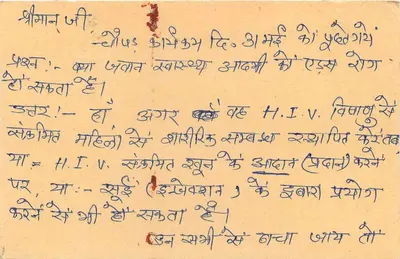 श्रीमान् जी:-
चौपड़ कार्यक्रम दि. 3 मई को पूछे गये
प्रश्न:- क्या जवान स्वास्थ्य आदमी को एड्स रोग
हो सकता है।
उत्तर:- हाँ अगर वह H.I.V. विषाणु से
संक्रमित महिला से शारीरिक सम्बन्ध स्थापित करें तब
या= H.I.V. संक्रमित खून के आदान (प्रदान) करने
पर, या:- सूई (इन्जेक्शन) के द्वारा प्रयोग
करने से भी हो सकता है।
इन सभी से बचा जाय तो